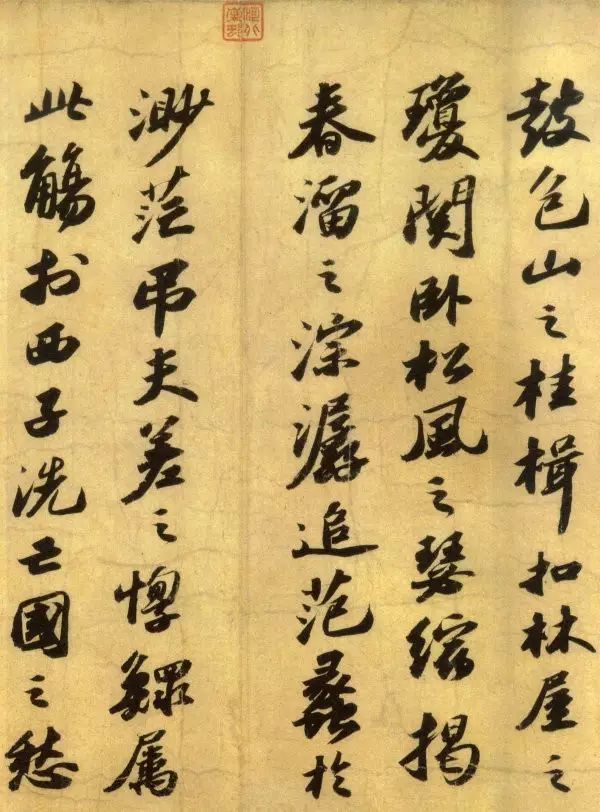 鼓包山之桂楫扣林屋之
瓊関卧松風之瑟縮揭
春溜之淙潺追范蠡於
渺茫吊夫差之惸鰥属
此觴於西子洗亡國之愁